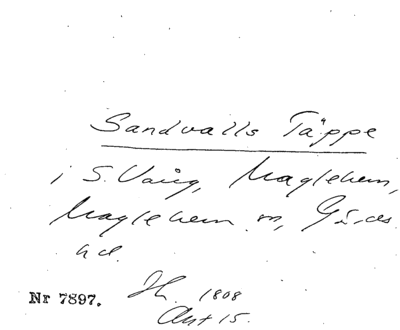 Sandvalls Täppe
i S. Vång, Maglehem,
Maglehem sn, Gärds
hd.
Nr 7897. 1808
Akt 15.